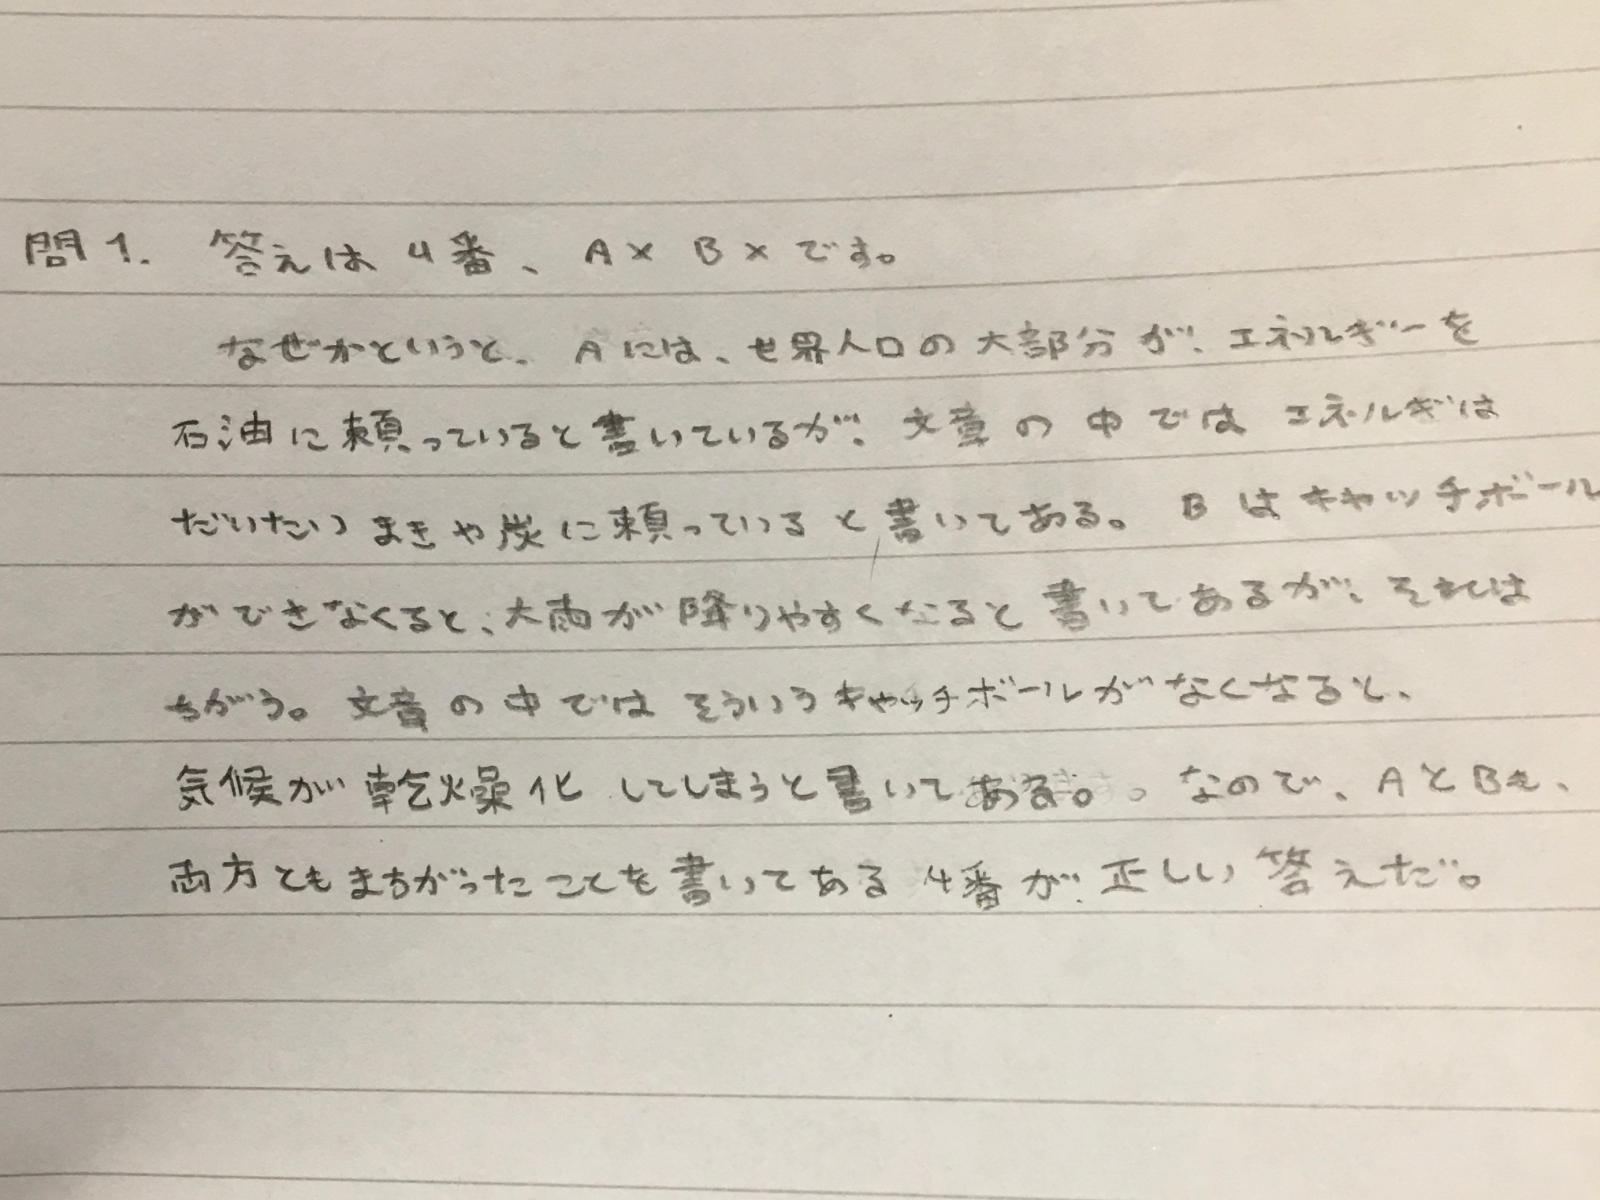 問1. 答えは4番、A×B×です。
なぜかというと、Aには、世界人口の大部分が、エネルギーを
石油に頼っていると書いているが、文章の中ではエネルギは
だいたいまきや炭に頼っていると書いてある。Bはキャッチボール
ができなくると、大雨が降りやすくなると書いてあるが、それは
ちがう。文章の中ではそういうキャッチボールがなくなると、
気候が乾燥化してしまうと書いてある。なので、AとBも、
両方ともまちがったことを書いてある4番が正しい答えだ。